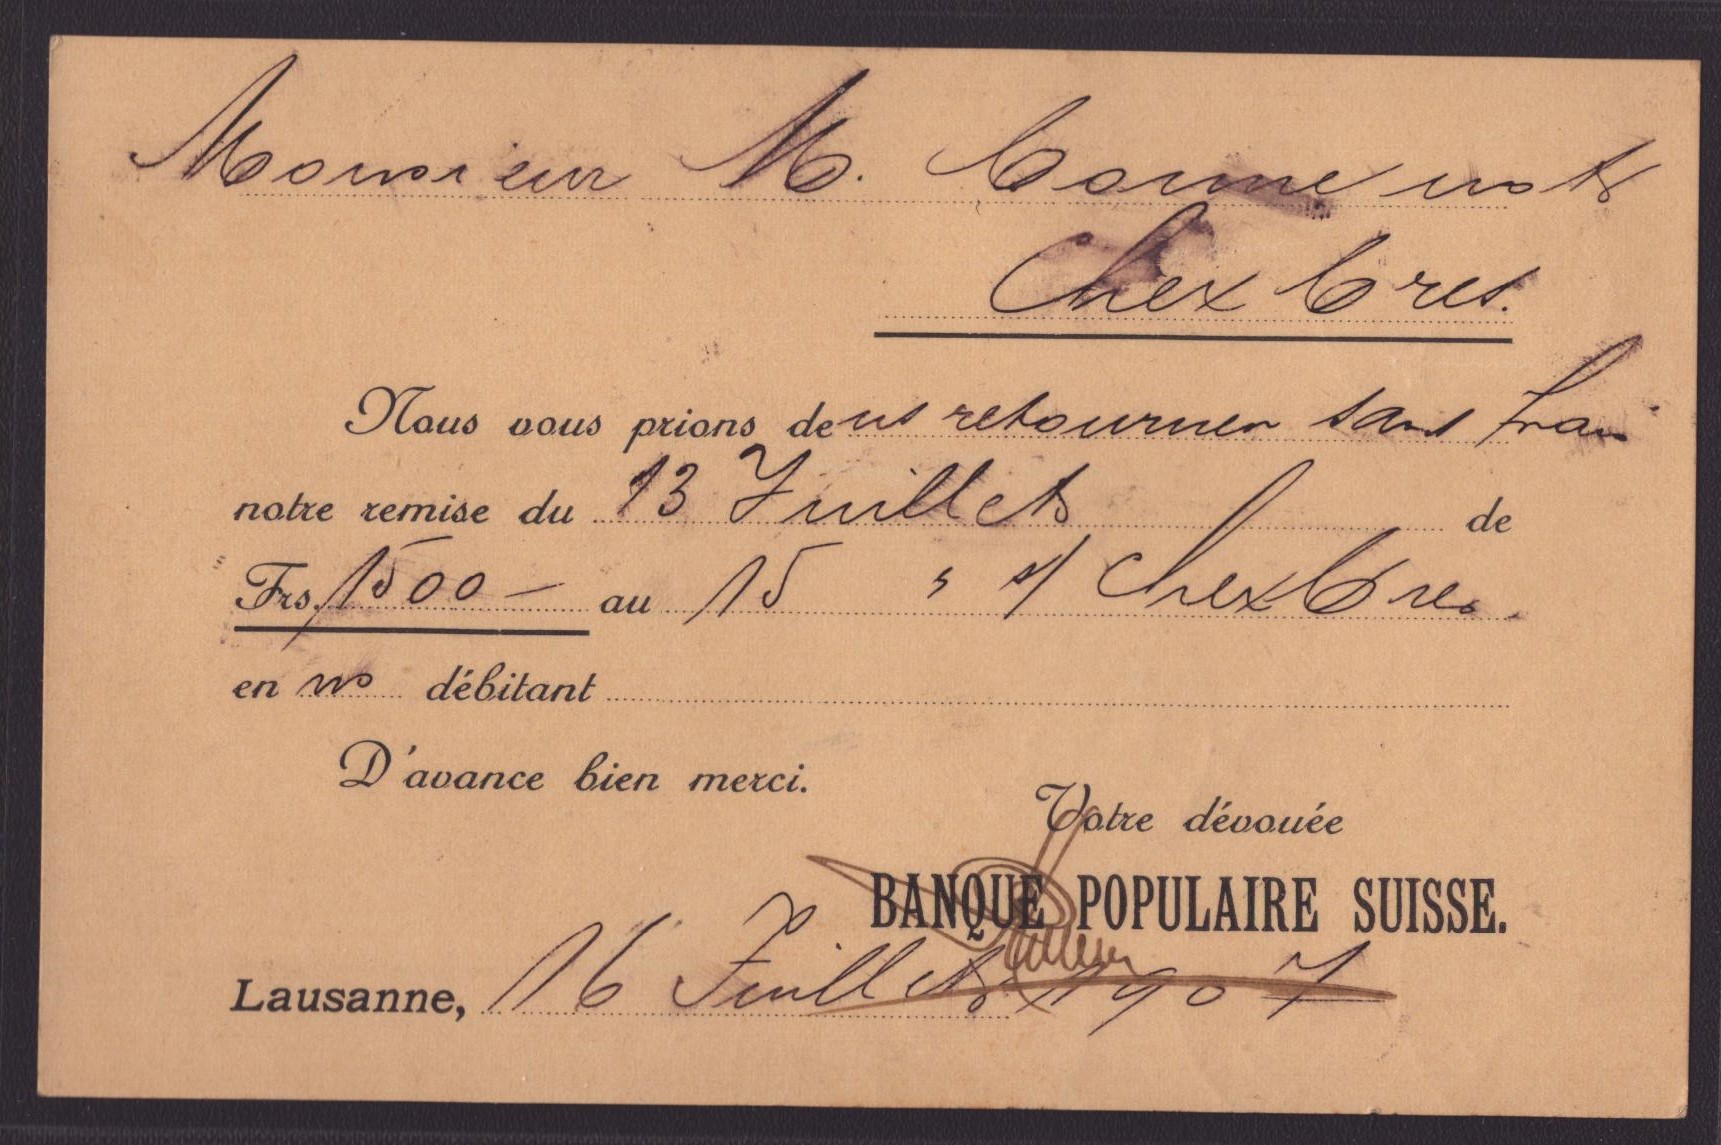 Monsieur M. Connemots
Chexbres.
Nous vous prions de ns retourner sans frais
notre remise du 13 Juillet de
Frs. 1500 — au 15 " s/ Chexbres
en no débitant
D'avance bien merci.
Votre dévouée
BANQUE POPULAIRE SUISSE.
Lausanne, 16 Juillet 1907